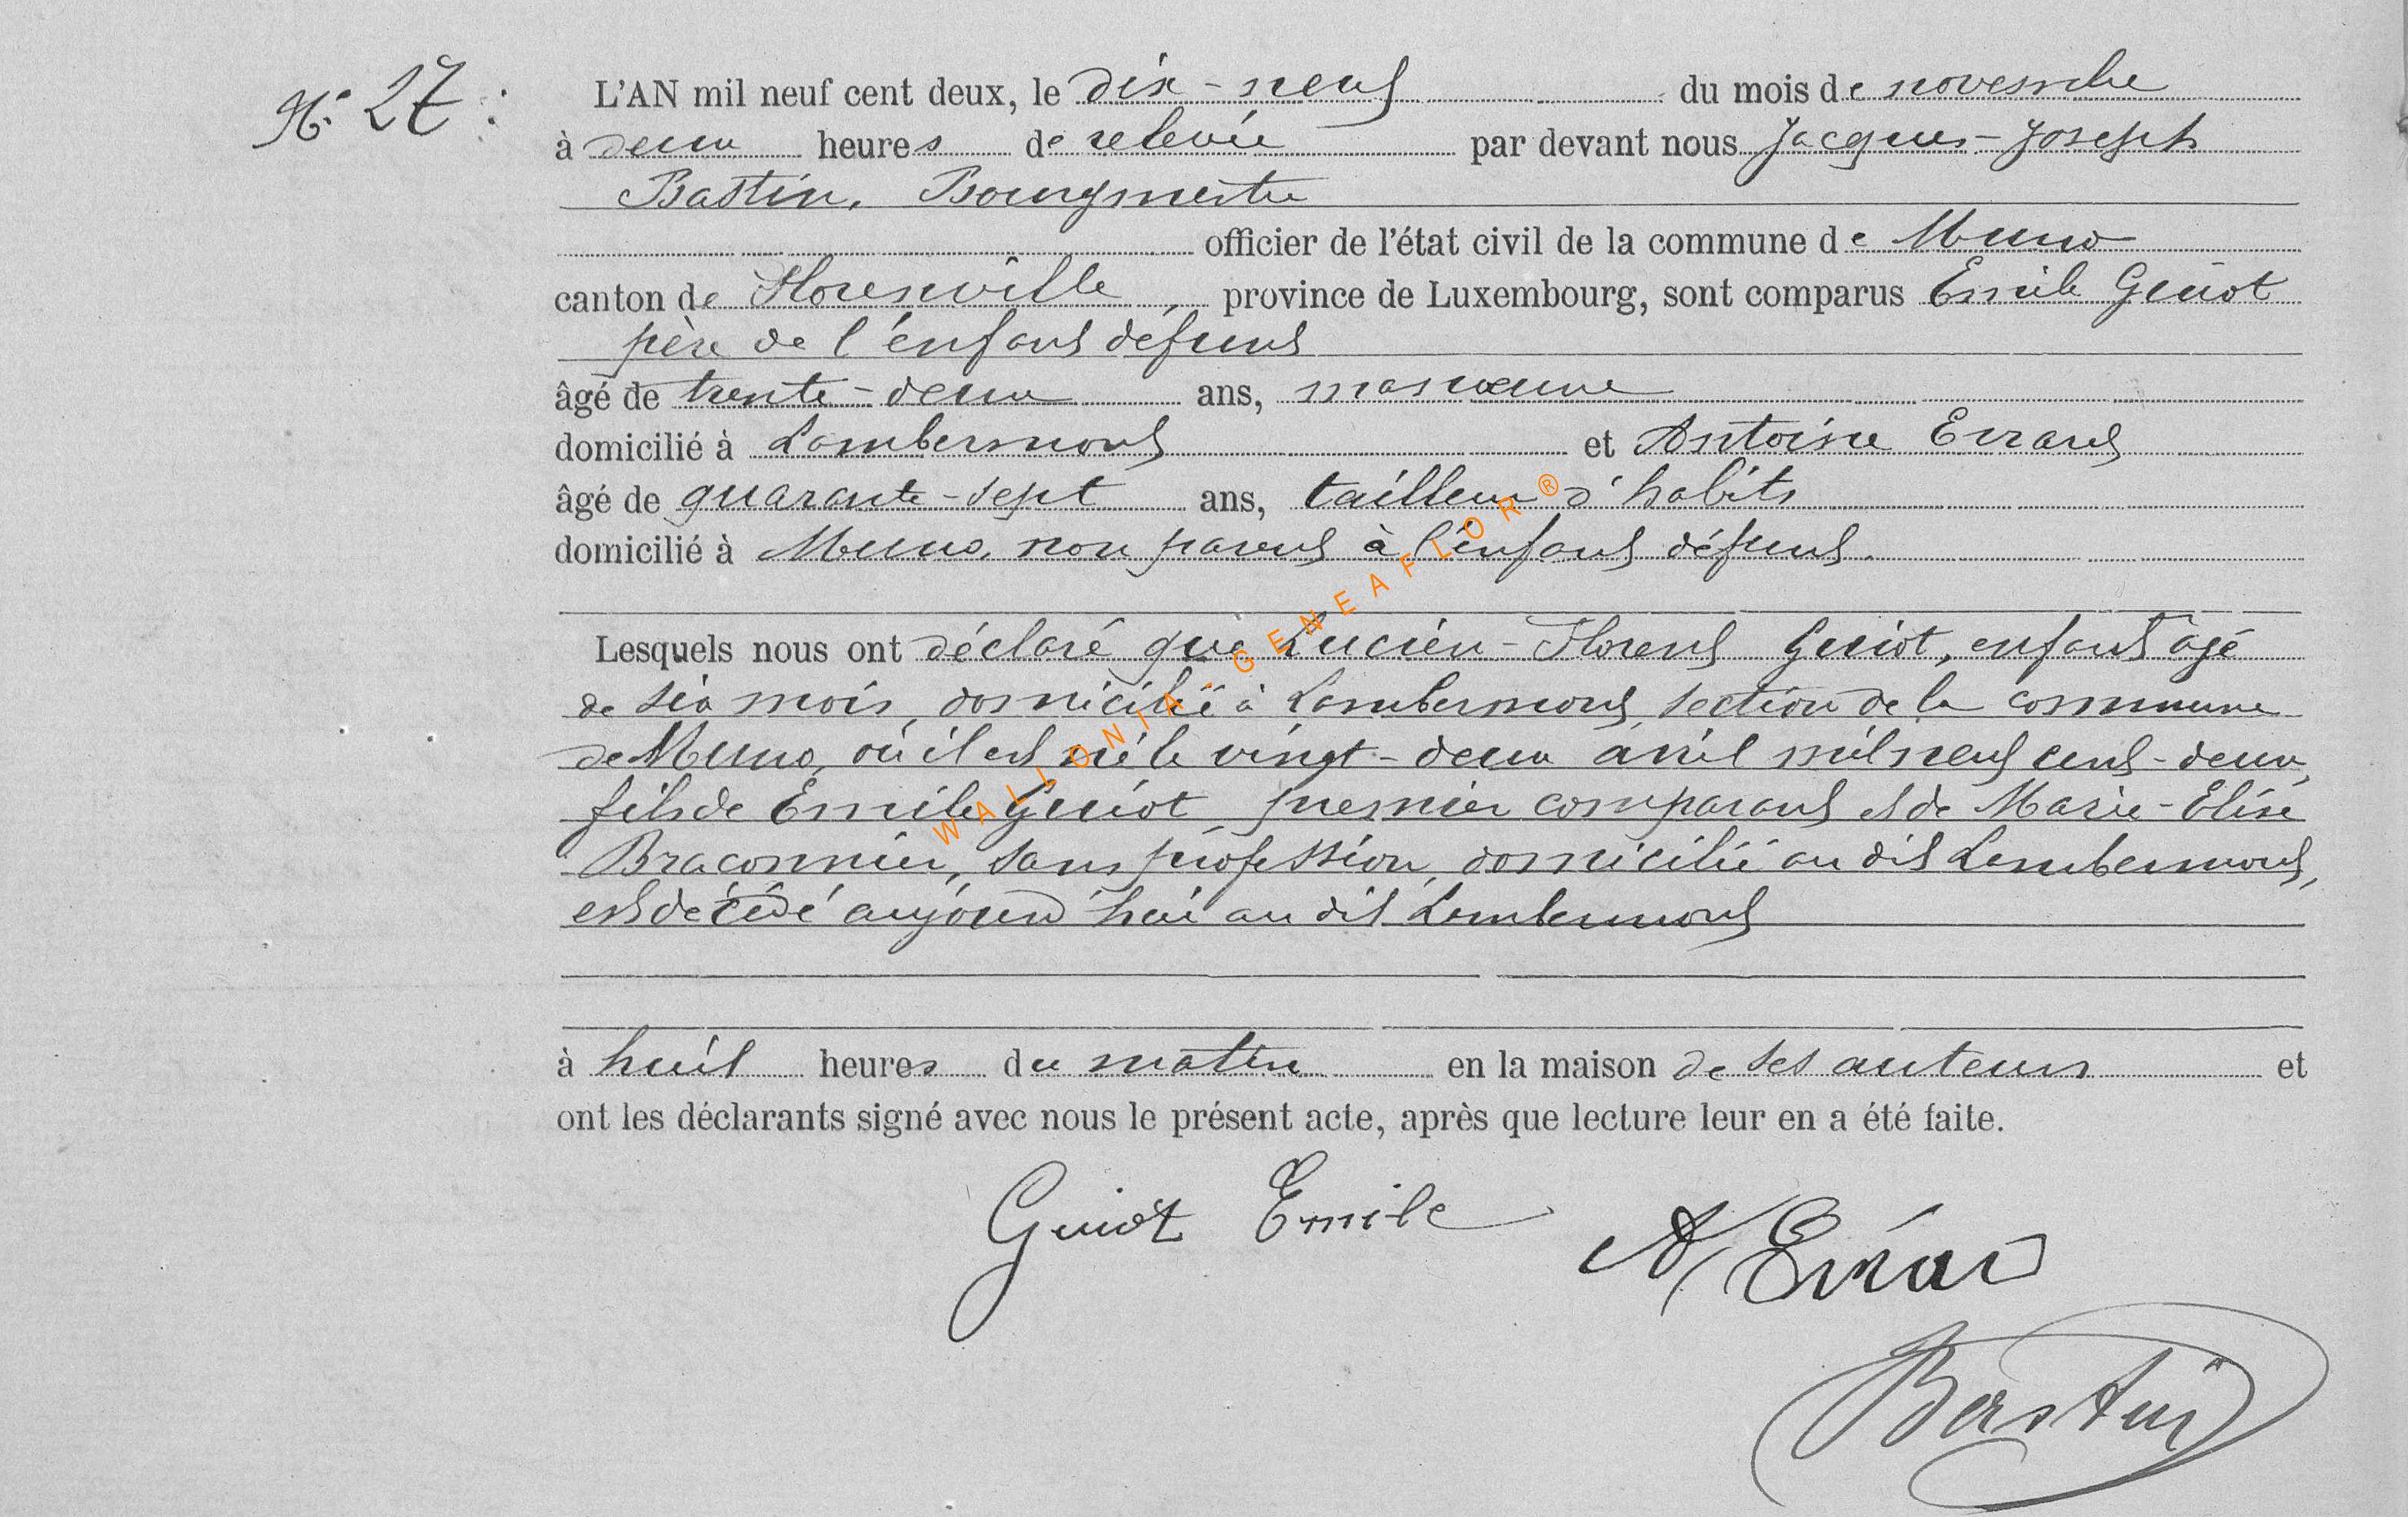 N° 27 :
L'AN mil neuf cent deux, le dix-neuf du mois de novembre
à deux heures de relevée par devant nous Jacques-Joseph
Bastin, Bourgmestre
officier de l'état civil de la commune de Muno
canton de Florenville, province de Luxembourg, sont comparus Emile Guiot
père de l'enfant défunt
âgé de trente-deux ans, manœuvre
domicilié à Lambermont et Antoine Errard
âgé de quarante-sept ans, tailleur d'habits
domicilié à Muno, non parent à l'enfant défunt.
Lesquels nous ont déclaré que Lucien-Florent Guiot, enfant âgé
de six mois, domicilié à Lambermont, section de la commune
de Muno, où il est né le vingt-deux avril mil neuf cent-deux,
fils de Emile Guiot premier comparant et de Marie-Elise
Braconnier, sans profession, domiciliée au dit Lambermont,
est décédé aujourd'hui au dit Lambermont
à huit heures du matin en la maison de ses auteurs et
ont les déclarants signé avec nous le présent acte, après que lecture leur en a été faite.
Guiot Emile
A Errard
Bastin
WALLONIA-GENEAFLOR®